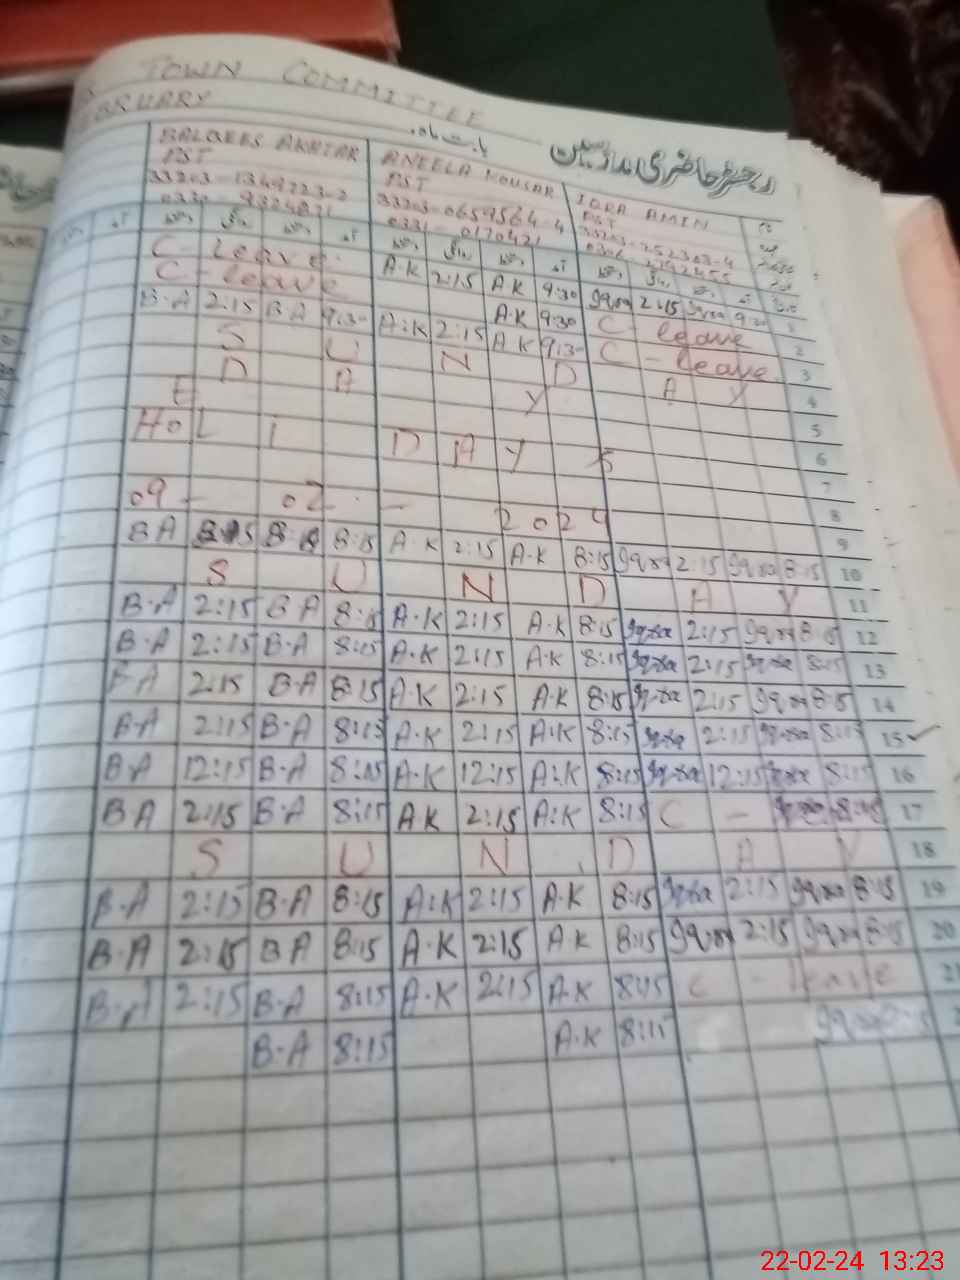 TOWN COMMITTEE
BRUARY
بابت ماہ
رجسٹر حاضری ملازمین
BALQEES AKHTAR ANEELA KOUSAR IQRA AMIN
PST PST PST
C - Leave A.K 2:15 A.K 9:30 Iqra 2:15 Iqra 9:30 1
C - leave A.K 9:30 C - leave 2
B.A 2:15 B.A 9:30 A.K 2:15 A.K 9:30 C - leave 3
S U N D A Y 4
D A Y 5
E 6
HoL I D A Y S 7
09 - 02 - 2024 8
BA 2:15 B.A 8:15 A.K 2:15 A.K 8:15 Iqra 2:15 Iqra 8:15 10
9
S U N D A Y 11
B.A 2:15 B A 8:15 A.K 2:15 A.K 8:15 Iqra 2:15 Iqra 8:15 12
B.A 2:15 B.A 8:15 A.K 2:15 A.K 8:15 Iqra 2:15 Iqra 8:15 13
B A 2:15 B.A 8:15 A.K 2:15 A.K 8:15 Iqra 2:15 Iqra 8:15 14
B.A 2:15 B.A 8:15 A.K 2:15 A.K 8:15 Iqra 2:15 Iqra 8:15 15
B.A 12:15 B.A 8:15 A.K 12:15 A.K 8:15 Iqra 12:15 Iqra 8:15 16
B A 2:15 B.A 8:15 A K 2:15 A.K 8:15 C - 8:15 17
S U N D A Y 18
B.A 2:15 B.A 8:15 A.K 2:15 A.K 8:15 Iqra 2:15 Iqra 8:15 19
B.A 2:15 B A 8:15 A.K 2:15 A.K 8:15 Iqra 2:15 Iqra 8:15 20
B.A 2:15 B.A 8:15 A.K 2:15 A.K 8:15 C - leave 21
B.A 8:15 A.K 8:15 Iqra 8:15
22-02-24 13:23